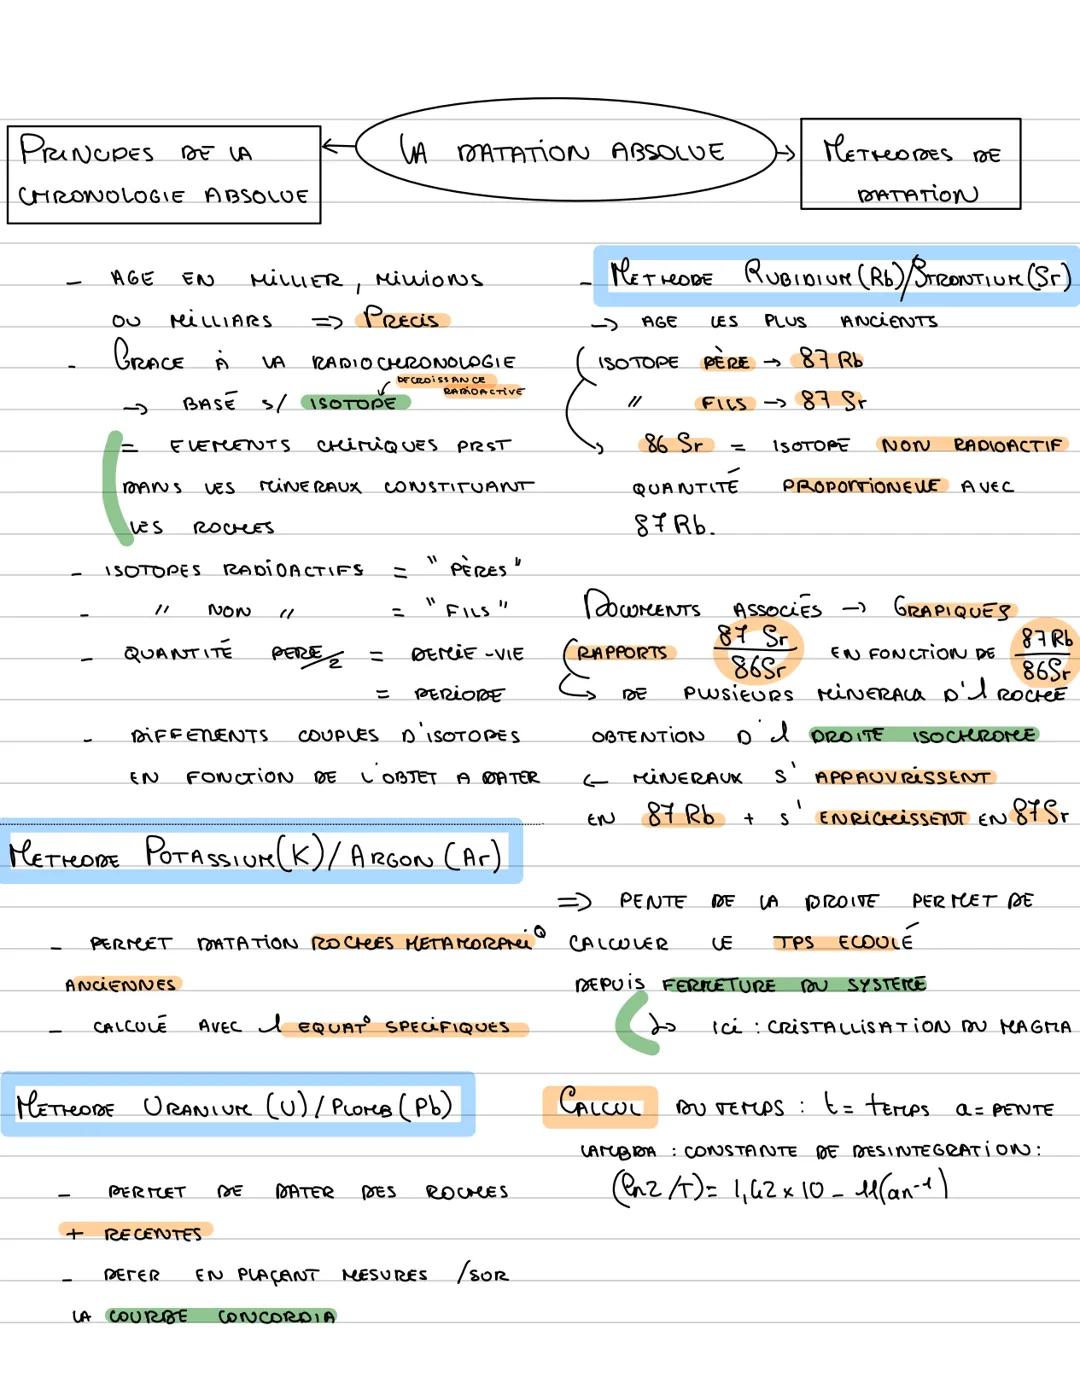 LA DATATION ABSOLUE
PRINCIPES DE LA
CHRONOLOGIE ABSOLUE
- AGE EN MILLIER, MILLIONS
OU MILLIARS => PRECIS
- GRACE À LA RADIOCHRONOLOGIE
DECROISSANCE
RADIOACTIVE
-> BASÉ S/ ISOTOPE
= ELEMENTS CHIMIQUES PRST
DANS LES MINERAUX CONSTITUANT
LES ROCHES
- ISOTOPES RADIOACTIFS = "PÈRES"
- " NON " = "FILS"
- QUANTITÉ PERE/2 = DEMIE-VIE
= PERIODE
- DIFFERENTS COUPLES D'ISOTOPES
EN FONCTION DE L'OBJET A DATER
METHODE POTASSIUM(K)/ARGON (Ar)
- PERMET DATATION ROCHES METAMORPHIQ
ANCIENNES
- CALCULÉ AVEC 1 EQUAT° SPECIFIQUES
METHODE URANIUM (U)/PLOMB(Pb)
- PERMET DE DATER DES ROCHES
+ RECENTES
- DETER EN PLAÇANT MESURES /SUR
LA COURBE CONCORDIA
METHODES DE
DATATION
- METHODE RUBIDIUM(Rb)/STRONTIUM(Sr)
-> AGE LES PLUS ANCIENTS
ISOTOPE PÈRE -> 87 Rb
" FILS -> 87 Sr
86 Sr = ISOTOPE NON RADIOACTIF
QUANTITÉ PROPORTIONELLE AVEC
87Rb.
DOCUMENTS ASSOCIÉS -> GRAPIQUES
RAPPORTS 87 Sr/86Sr EN FONCTION DE 87Rb/86Sr
DE PLUSIEURS MINERAUX D'1 ROCHE
OBTENTION D'1 DROITE ISOCHRONE
<- MINERAUX S'APPAUVRISSENT
EN 87 Rb + S'ENRICHISSENT EN 87Sr
=> PENTE DE LA DROITE PERMET DE
CALCULER LE TPS ECOULÉ
DEPUIS FERMETURE DU SYSTEME
-> ICI : CRISTALLISATION DU MAGMA
CALCUL DU TEMPS : t = TEMPS a = PENTE
LAMBDA : CONSTANTE DE DESINTEGRATION:
(ln2/T)= 1,42 x 10 - 11(an⁻¹)